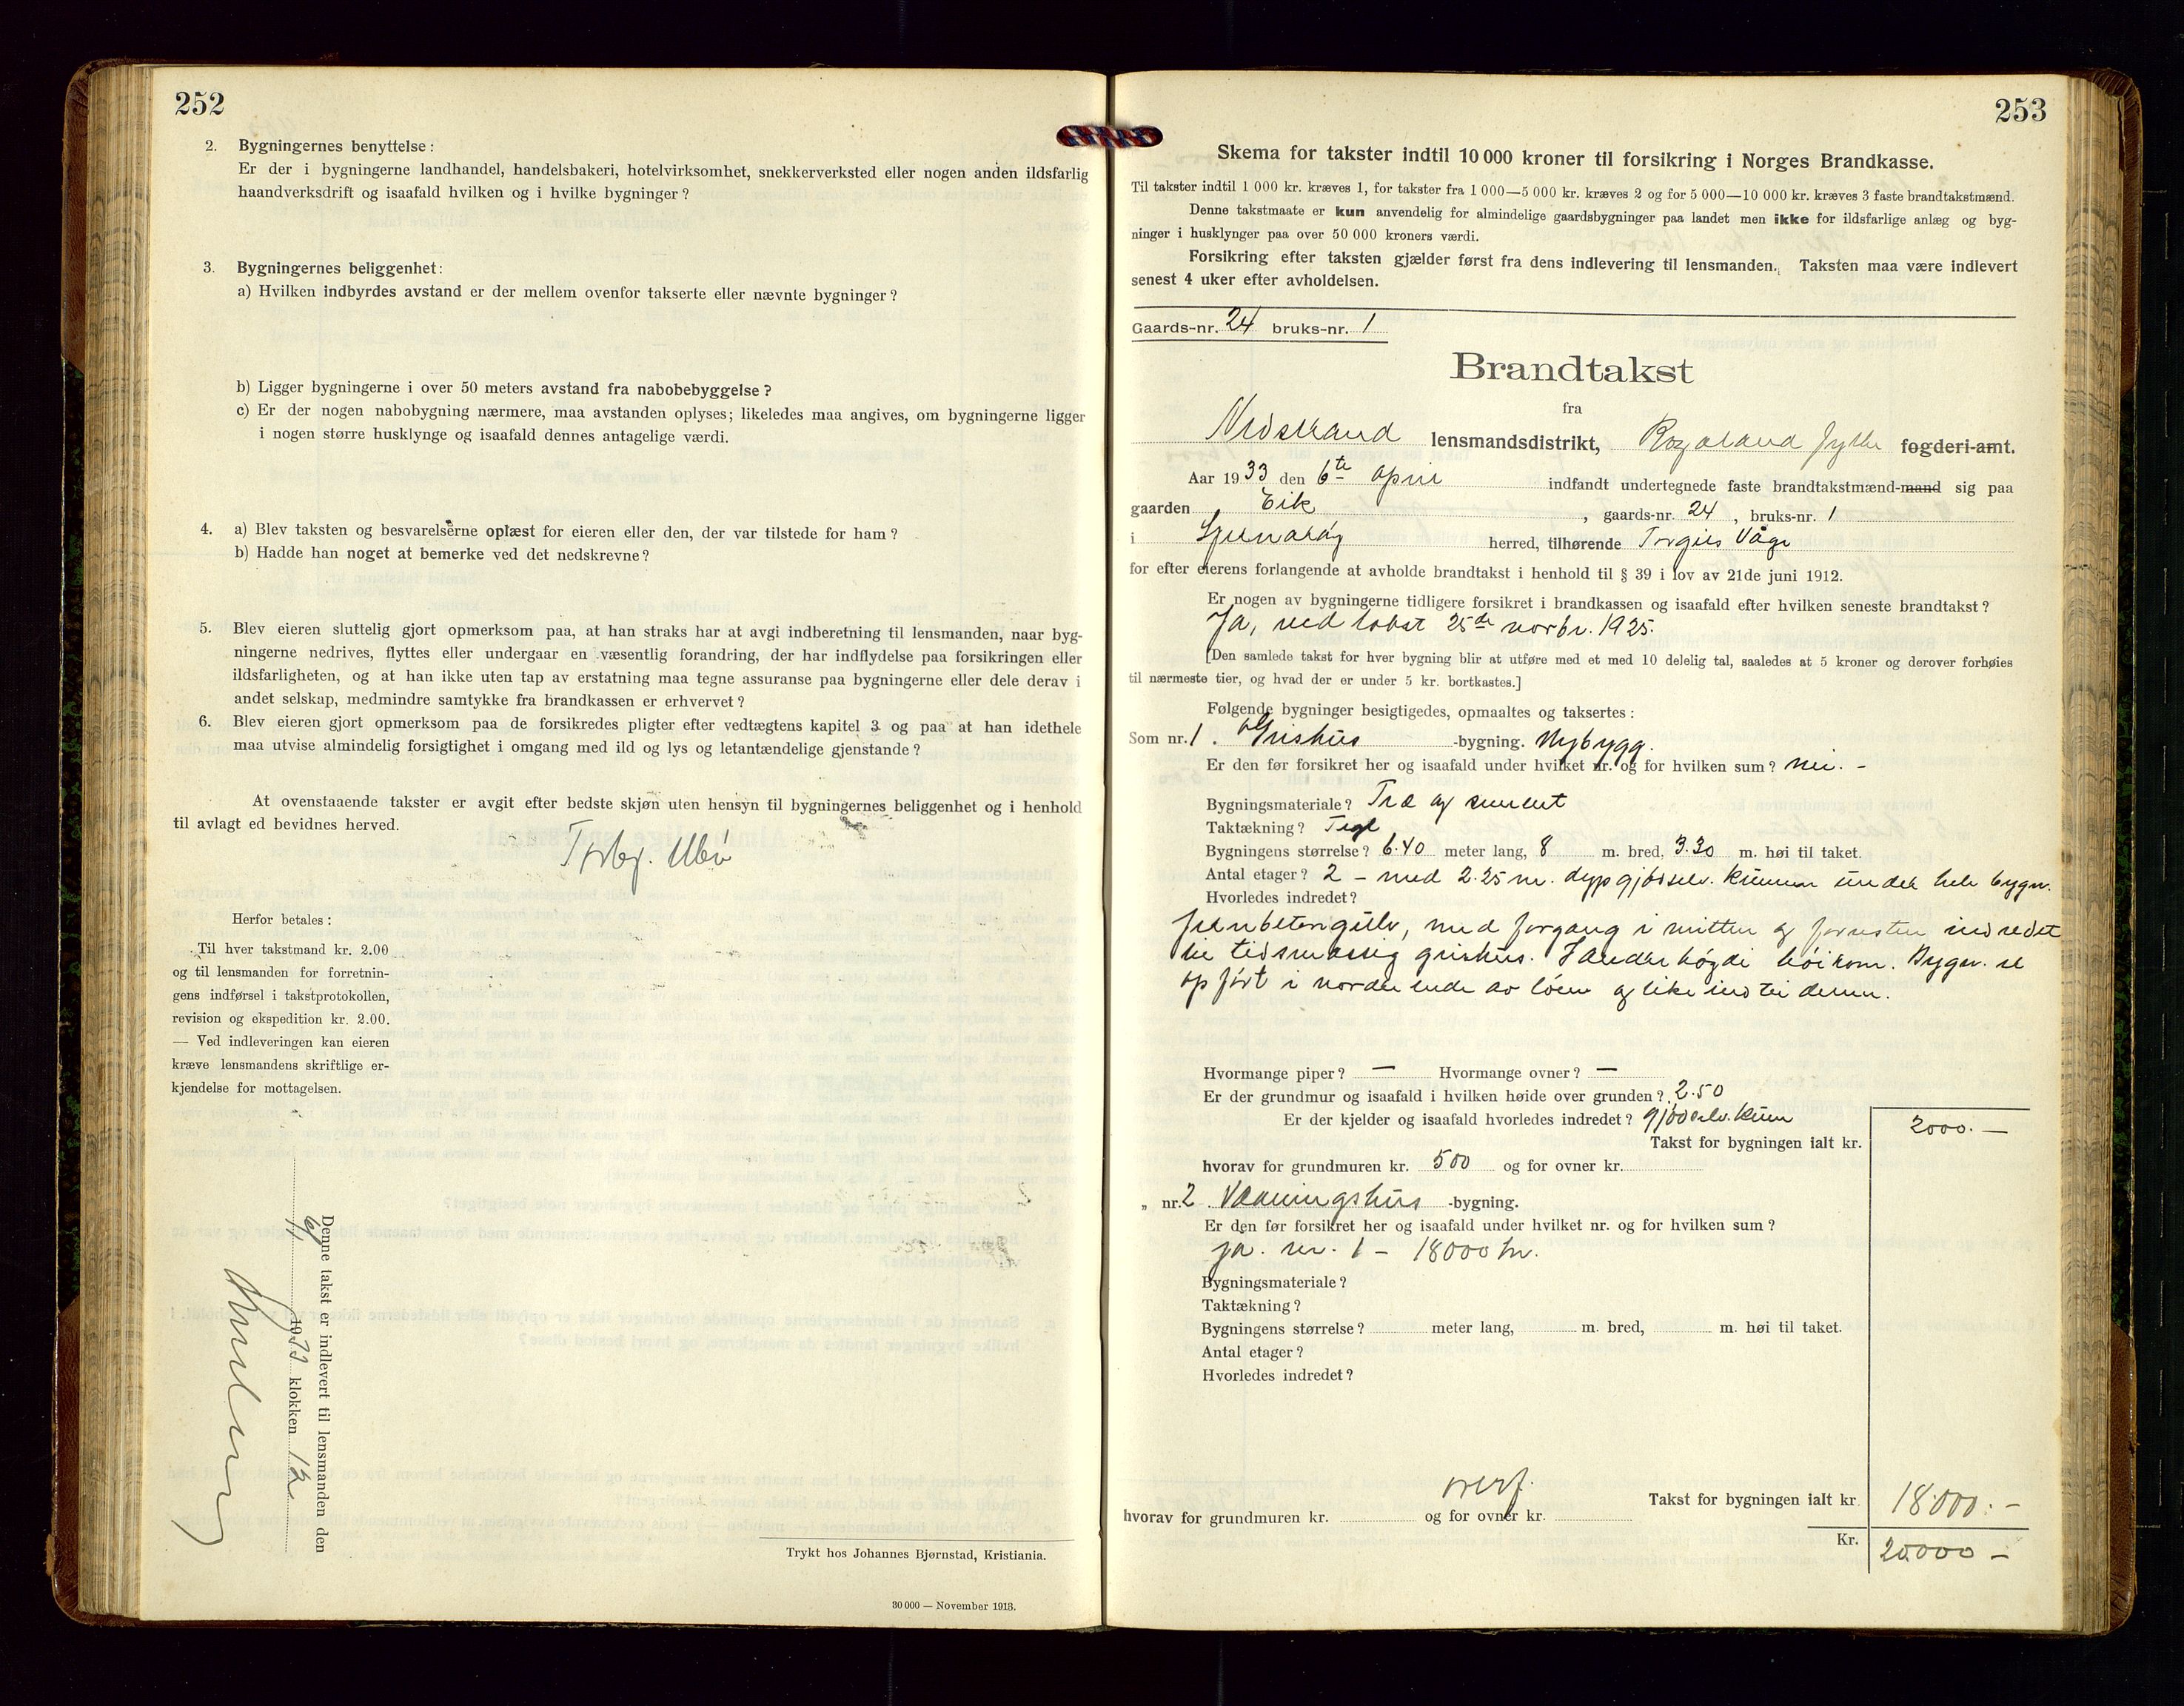 252
2. Bygningernes benyttelse:
Er der i bygningerne landhandel, handelsbakeri, hotelvirksomhet, snekkerverksted eller nogen anden ildsfarlig
haandverksdrift og isaafald hvilken og i hvilke bygninger?
3. Bygningernes beliggenhet:
a) Hvilken indbyrdes avstand er der mellem ovenfor takserte eller nævnte bygninger?
b) Ligger bygningerne i over 50 meters avstand fra nabobebyggelse?
c) Er der nogen nabobygning nærmere, maa avstanden oplyses; likeledes maa angives, om bygningerne ligger
i nogen større husklynge og isaafald dennes antagelige værdi.
4. a) Blev taksten og besvarelserne oplæst for eieren eller den, der var tilstede for ham?
b) Hadde han noget at bemerke ved det nedskrevne?
5. Blev eieren sluttelig gjort opmerksom paa, at han straks har at avgi indberetning til lensmanden, naar byg-
ningerne nedrives, flyttes eller undergaar en væsentlig forandring, der har indflydelse paa forsikringen eller
ildsfarligheten, og at han ikke uten tap av erstatning maa tegne assuranse paa bygningerne eller dele derav i
andet selskap, medmindre samtykke fra brandkassen er erhvervet?
6. Blev eieren gjort opmerksom paa de forsikredes pligter efter vedtægtens kapitel 3 og paa at han idethele
maa utvise almindelig forsigtighet i omgang med ild og lys og letantændelige gjenstande?
At ovenstaaende takster er avgit efter bedste skjøn uten hensyn til bygningernes beliggenhet og i henhold
til avlagt ed bevidnes herved.
Herfor betales:
Til hver takstmand kr. 2.00
og til lensmanden for forretnin-
gens indførsel i takstprotokollen,
revision og ekspedition kr. 2.00.
— Ved indleveringen kan eieren
kræve lensmandens skriftlige er-
kjendelse for mottagelsen.
Denne takst er indlevert til lensmanden den
1933 klokken 12
Trykt hos Johannes Bjørnstad, Kristiania.
30 000 — November 1913.
253
Skema for takster indtil 10 000 kroner til forsikring i Norges Brandkasse.
Til takster indtil 1 000 kr. kræves 1, for takster fra 1 000—5 000 kr. kræves 2 og for 5 000—10 000 kr. kræves 3 faste brandtakstmænd.
Denne takstmaate er kun anvendelig for almindelige gaardsbygninger paa landet men ikke for ildsfarlige anlæg og byg-
ninger i husklynger paa over 50 000 kroners værdi.
Forsikring efter taksten gjælder først fra dens indlevering til lensmanden. Taksten maa være indlevert
senest 4 uker efter avholdelsen.
Gaards-nr. 24 bruks-nr. 1
Brandtakst
fra
Nedstrand lensmandsdistrikt, Rogaland fylke fogderi-amt.
Aar 1933 den 6te april indfandt undertegnede faste brandtakstmænd-mand sig paa
gaarden Eik, gaards-nr. 24, bruks-nr. 1
i herred, tilhørende Torgils Våge
for efter eierens forlangende at avholde brandtakst i henhold til § 39 i lov av 21de juni 1912.
Er nogen av bygningerne tidligere forsikret i brandkassen og isaafald efter hvilken seneste brandtakst?
Ja, ved takst 25de novbr. 1925.
[Den samlede takst for hver bygning blir at utføre med et med 10 delelig tal, saaledes at 5 kroner og derover forhøies
til nærmeste tier, og hvad der er under 5 kr. bortkastes.]
Følgende bygninger besigtigedes, opmaaltes og taksertes:
Som nr. 1. Grishus -bygning. Nybygg.
Er den før forsikret her og isaafald under hvilket nr. og for hvilken sum? nei. -
Bygningsmateriale? Træ og cement
Taktækning? Tegl
Bygningens størrelse? 6.40 meter lang, 8 m. bred, 3.30 m. høi til taket.
Antal etager? 2 - med 2.25 m. dyp gjødselv. kummer under hele bygn.
Hvorledes indredet?
jernbetongulv, med forgang i mitten og foresten indredet
til tidsmæssig grishus. I anden høgde høirom. Bygn. er
opført i nordre ende av løen og like ind til denne.
Hvormange piper? — Hvormange ovner? —
Er der grundmur og isaafald i hvilken høide over grunden? 2.50
Er der kjelder og isaafald hvorledes indredet? gjødselv. kum
Takst for bygningen ialt kr. 2000.—
hvorav for grundmuren kr. 500 og for ovner kr.
„ nr. 2. Vaaningshus -bygning.
Er den før forsikret her og isaafald under hvilket nr. og for hvilken sum?
ja. nr. 1 - 18000 kr.
Bygningsmateriale?
Taktækning?
Bygningens størrelse? meter lang, m. bred, m. høi til taket.
Antal etager?
Hvorledes indredet?
overf.
Takst for bygningen ialt kr. 18.000.-
hvorav for grundmuren kr. og for ovner kr.
Kr. 20.000 -